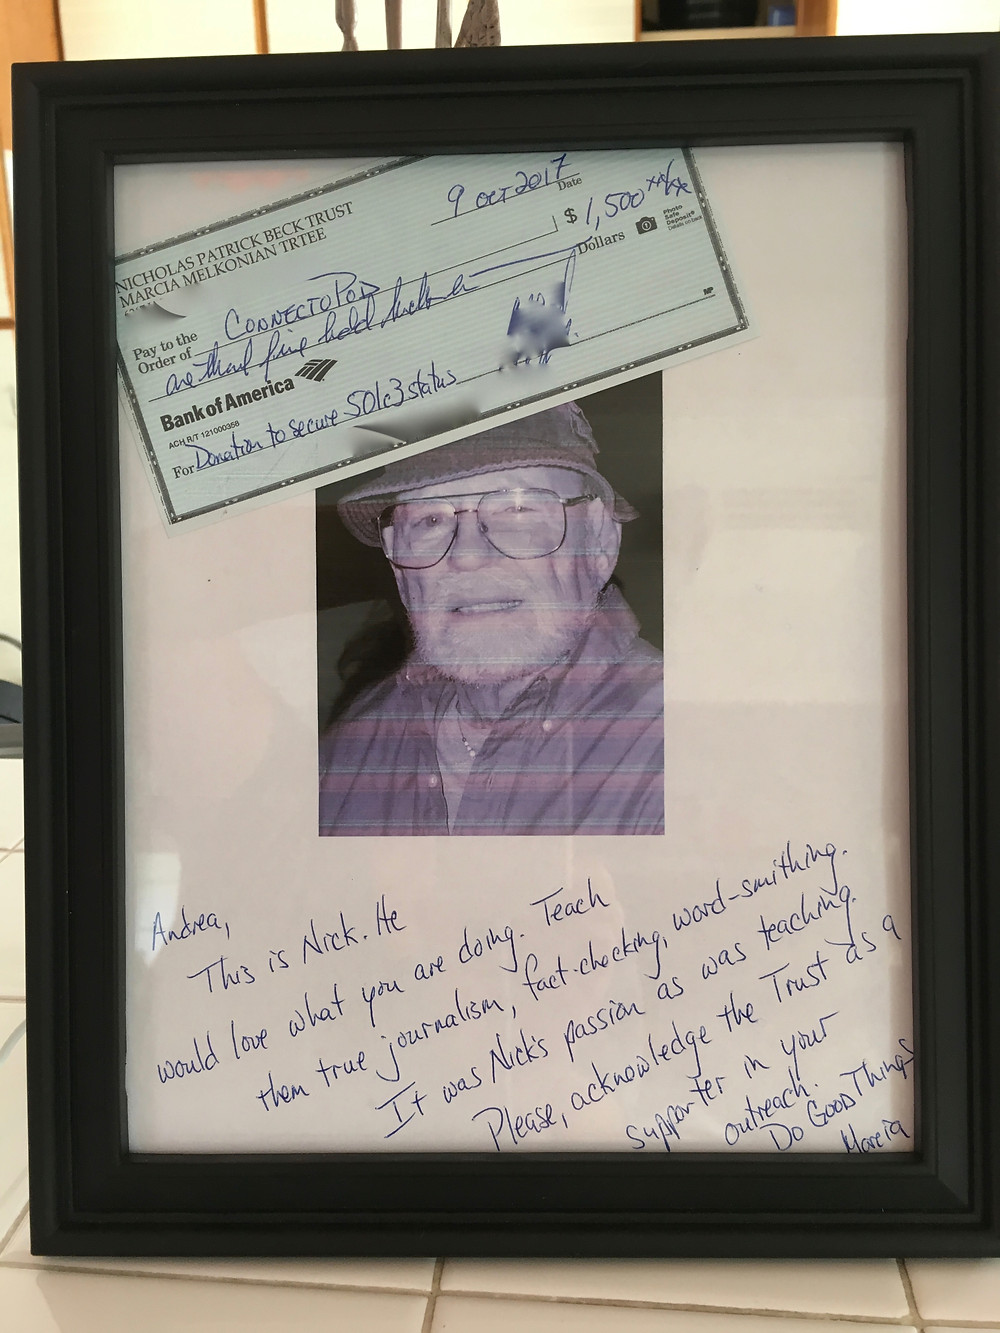 9 OCT 2017
Date
NICHOLAS PATRICK BECK TRUST
MARCIA MELKONIAN TRTEE
$ 1,500 xx/xx
Photo
Safe
Deposit®
Details on back
Pay to the
Order of CONNECTOPOD
one thousd five hdd Dollars
Bank of America
ACH R/T 121000358
For Donation to secure 501c3 status
MP
Andrea,
This is Nick. He
would love what you are doing. Teach
them true journalism, fact-checking, word-smithing.
It was Nick's passion as was teaching.
Please, acknowledge the Trust as a
supporter in your
outreach.
Do GOOD Things
Marcia